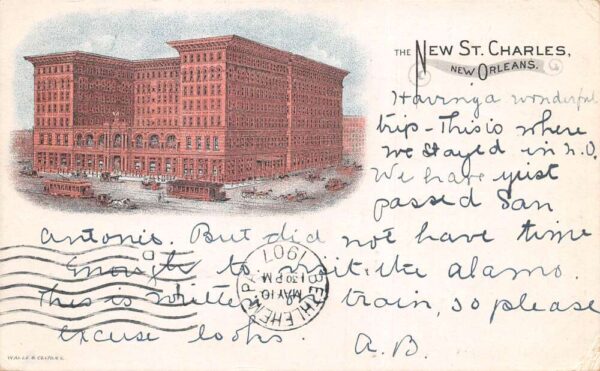 THE NEW ST. CHARLES,
NEW ORLEANS.
Having a wonderful
trip - This is where
we stayed in N.O.
We have just
passed San
Antonio. But did not have time
enough to visit the Alamo.
This is written on train, so please
excuse looks. A.B.
BETHLEHEM PA
MAY 10
130 PM
1907